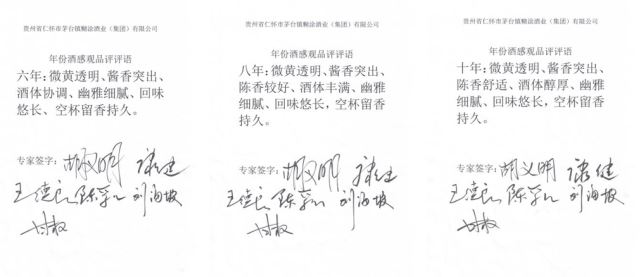 贵州省仁怀市茅台镇糊涂酒业（集团）有限公司
年份酒感观品评评语
六年：微黄透明、酱香突出、
酒体协调、幽雅细腻、回味
悠长、空杯留香持久。
专家签字：胡义明 康健
王德良 陈孟 刘海坡
贵州省仁怀市茅台镇糊涂酒业（集团）有限公司
年份酒感观品评评语
八年：微黄透明、酱香突出、
陈香较好、酒体丰满、幽雅
细腻、回味悠长，空杯留香
持久。
专家签字：胡义明 康健
王德良 陈孟 刘海坡
贵州省仁怀市茅台镇糊涂酒业（集团）有限公司
年份酒感观品评评语
十年：微黄透明、酱香突出、
陈香舒适、酒体醇厚、幽雅
细腻、回味悠长、空杯留香
持久。
专家签字：胡义明 康健
王德良 陈孟 刘海坡